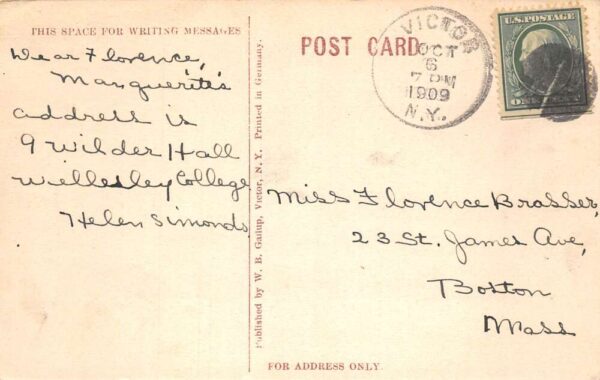 THIS SPACE FOR WRITING MESSAGES
Dear Florence,
Marguerite's
address is
9 Wilder Hall
Wellesley College
Helen Simonds
Published by W. B. Gallup, Victor, N. Y. Printed in Germany.
POST CARD
VICTOR
OCT
6
7 PM
1909
N.Y.
U.S. POSTAGE
Miss Florence Brasser,
23 St. James Ave,
Boston
Mass
FOR ADDRESS ONLY.